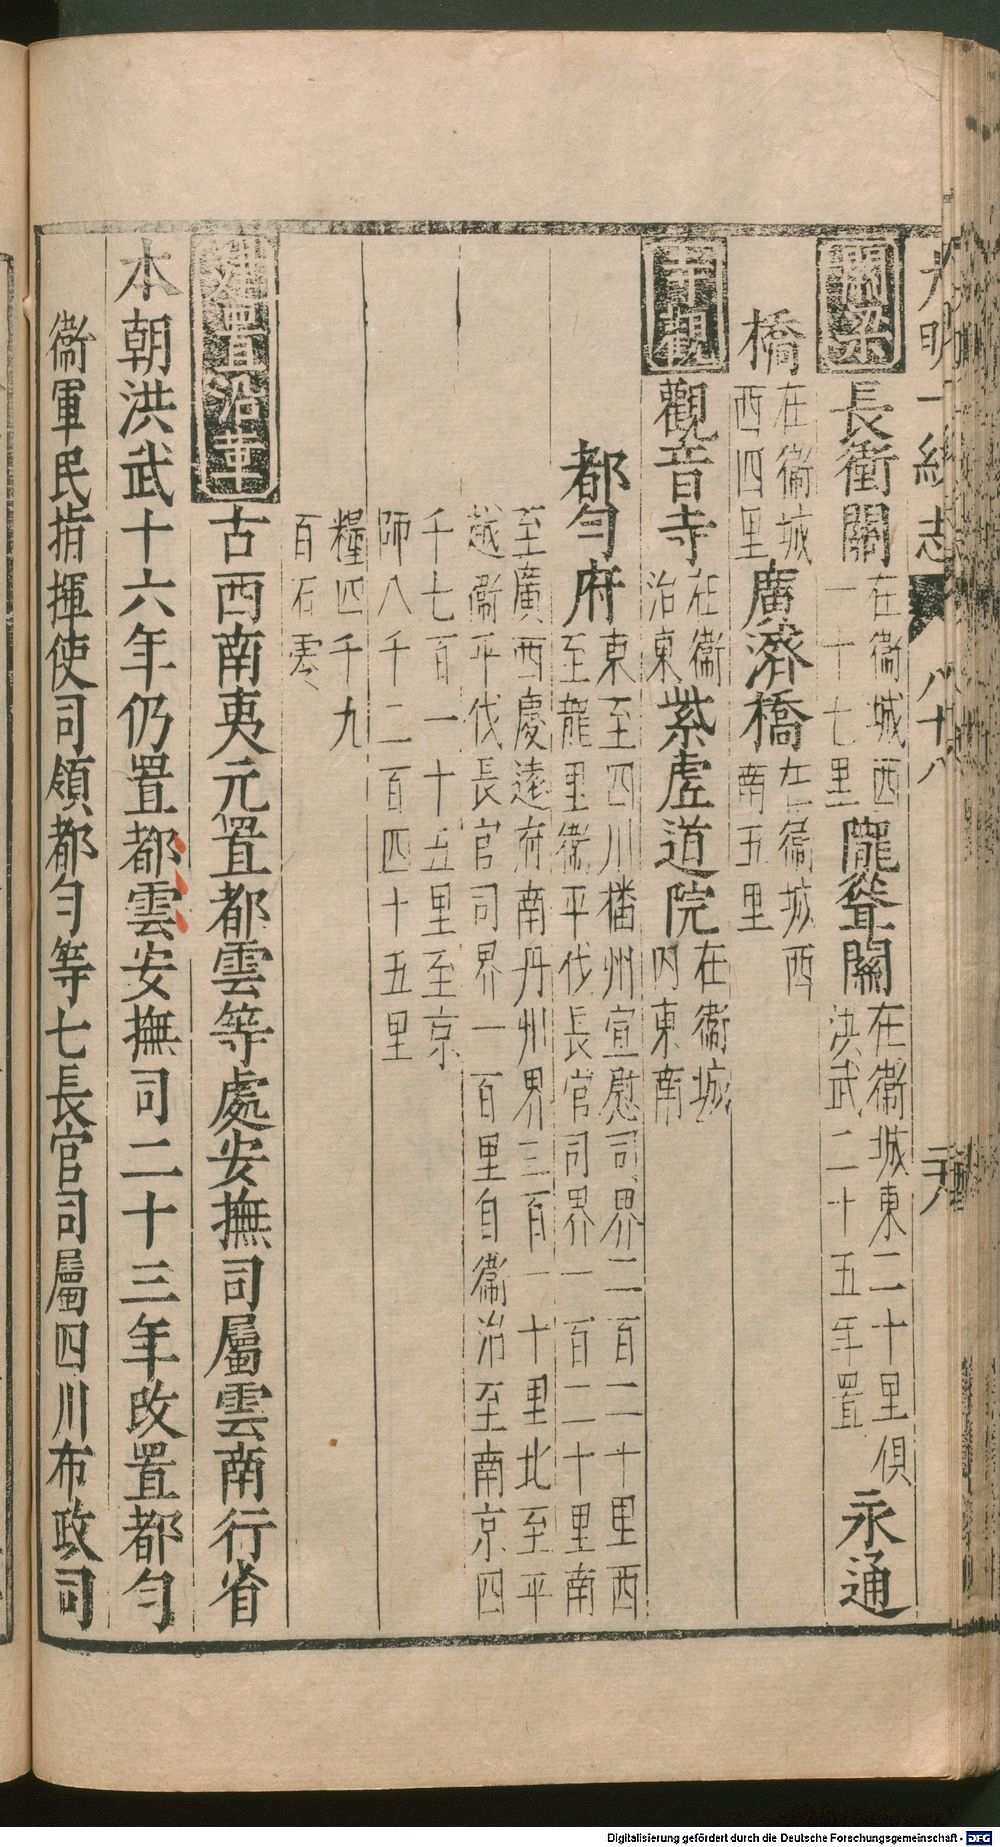 大明一統志 八十八
關梁 長衝關 在衞城西一十七里 巃嵸關 在衞城東二十里俱洪武二十五年置 永通
橋 在衞城西四里 廣濟橋 在衞城西南五里
寺觀 觀音寺 在衞治東 紫虗道院 在衞城内東南
都勻府 東至四川播州宣慰司界二百二十里西至龍里衞平伐長官司界一百二十里南
至廣西慶遠府南丹州界三百一十里北至平越衞平伐長官司界一百里自衞治至南京四
千七百一十五里至京師八千二百四十五里
糧四千九百石零
建置沿革 古西南夷元置都雲等處安撫司屬雲南行省
本朝洪武十六年仍置都雲安撫司二十三年改置都勻
衞軍民指揮使司領都勻等七長官司屬四川布政司
Digitalisierung gefördert durch die Deutsche Forschungsgemeinschaft - DFG